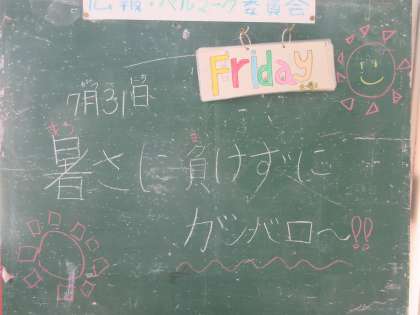 広報・ベルマーク委員会
Friday
7月31日
暑さに負けずに
ガンバロー〜!!